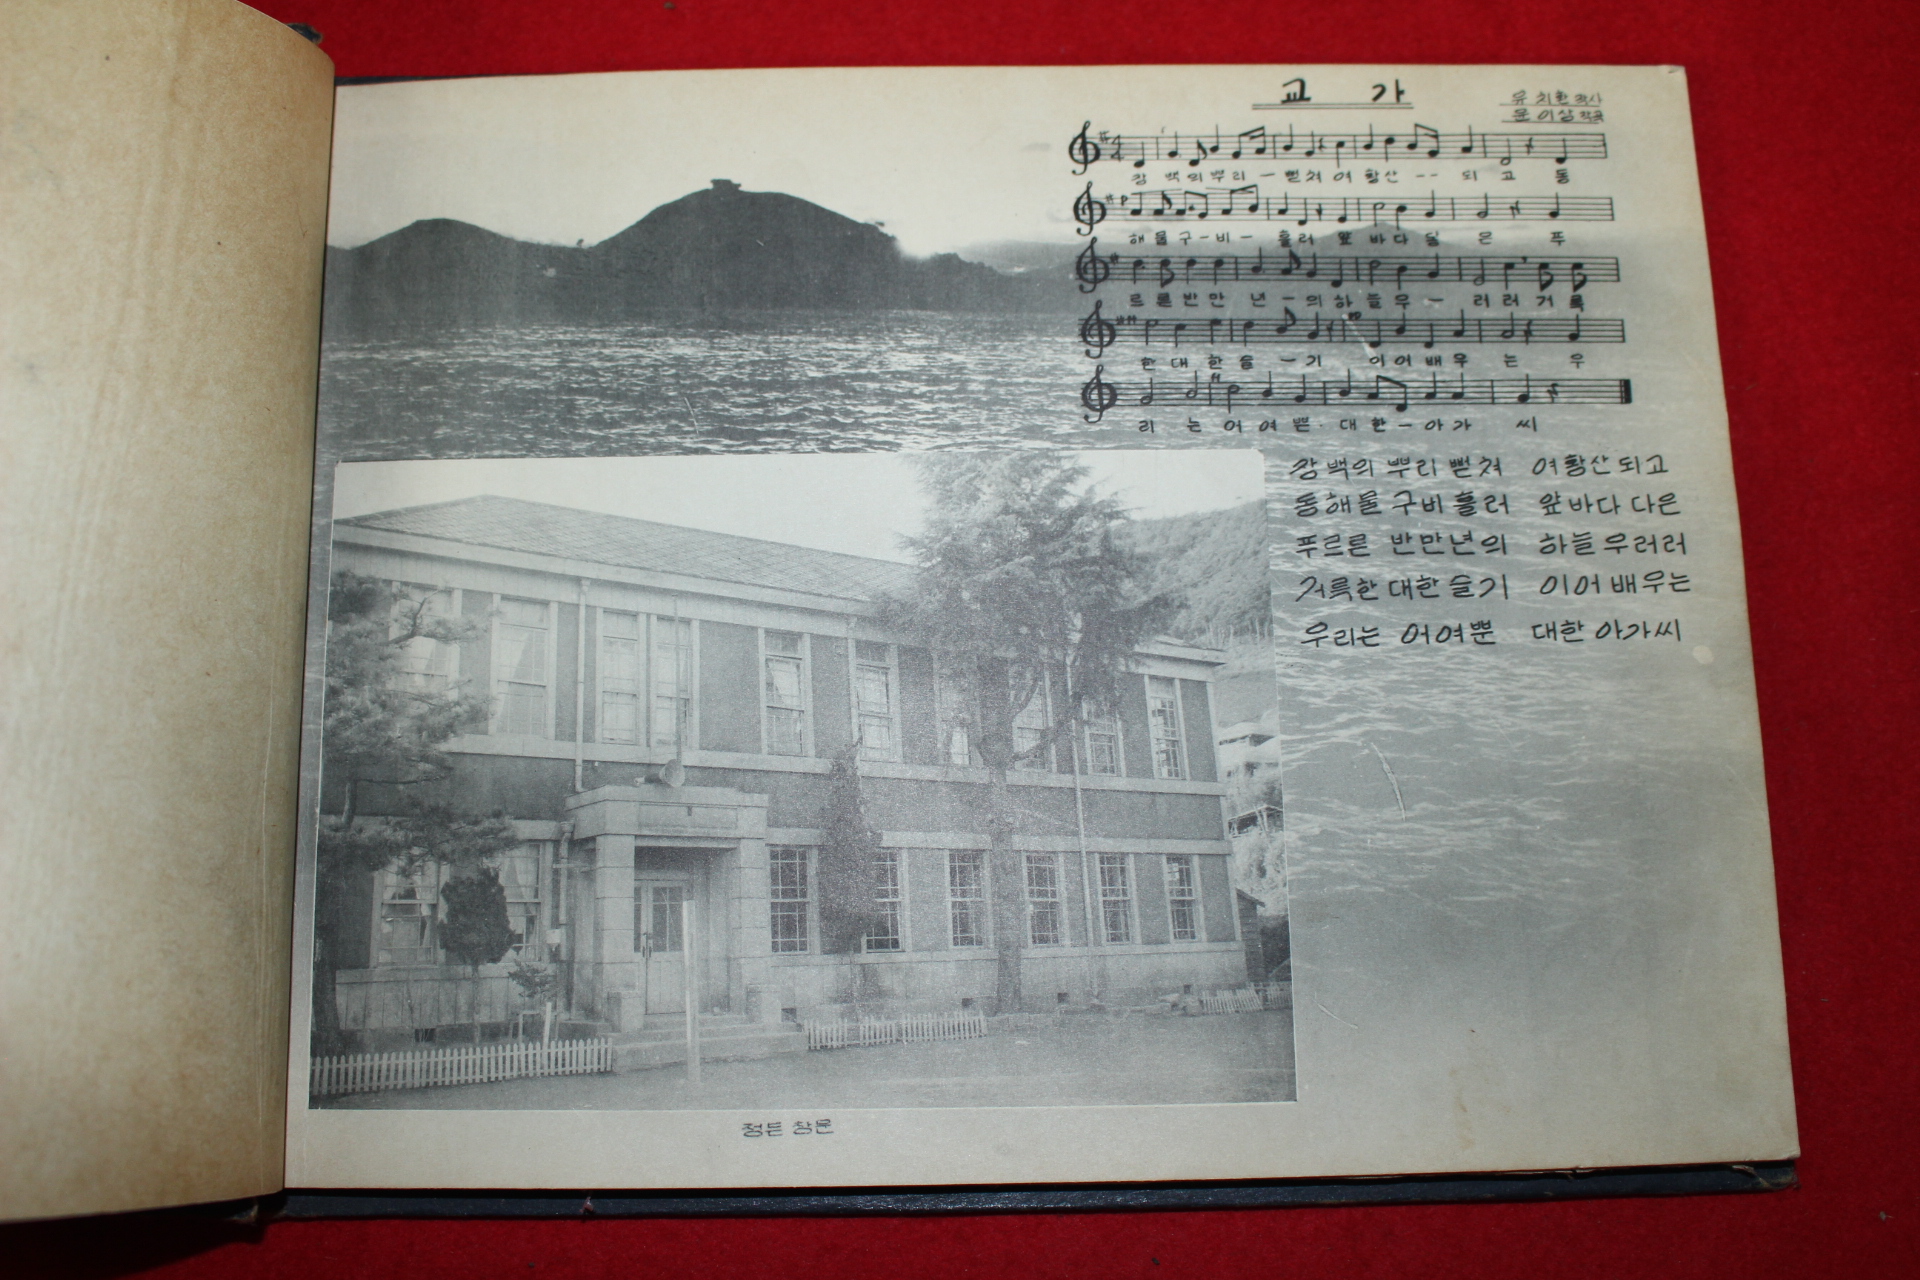 교 가
유치환 작사
윤이상 작곡
장 백의뿌리 - 뻗쳐 여 황산 -- 되 고 동
해 물 구 - 비 - 흘러 앞 바다 닮 은 푸
르른 반만 년 - 의 하 늘 우 - 러 러 거 룩
한 대 한 슬 - 기 이 어 배 우 는 우
리 는 어 여 쁜 · 대 한 - 아 가 씨
장백의 뿌리 뻗쳐 여황산되고
동해물 구비 흘러 앞바다 다은
푸르른 반만년의 하늘 우러러
거륵한 대한 슬기 이어 배우는
우리는 어여뿐 대한 아가씨
정든 창문